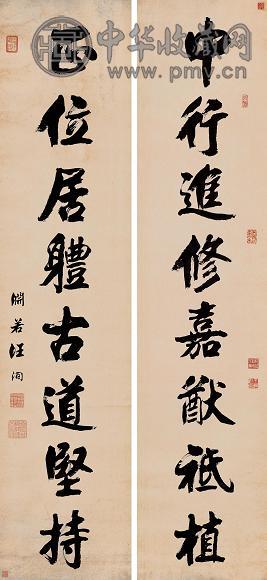 中行進修嘉猷祗植
正位居體古道堅持
淵若汪洵
中华收藏网
www.pmyv.cn